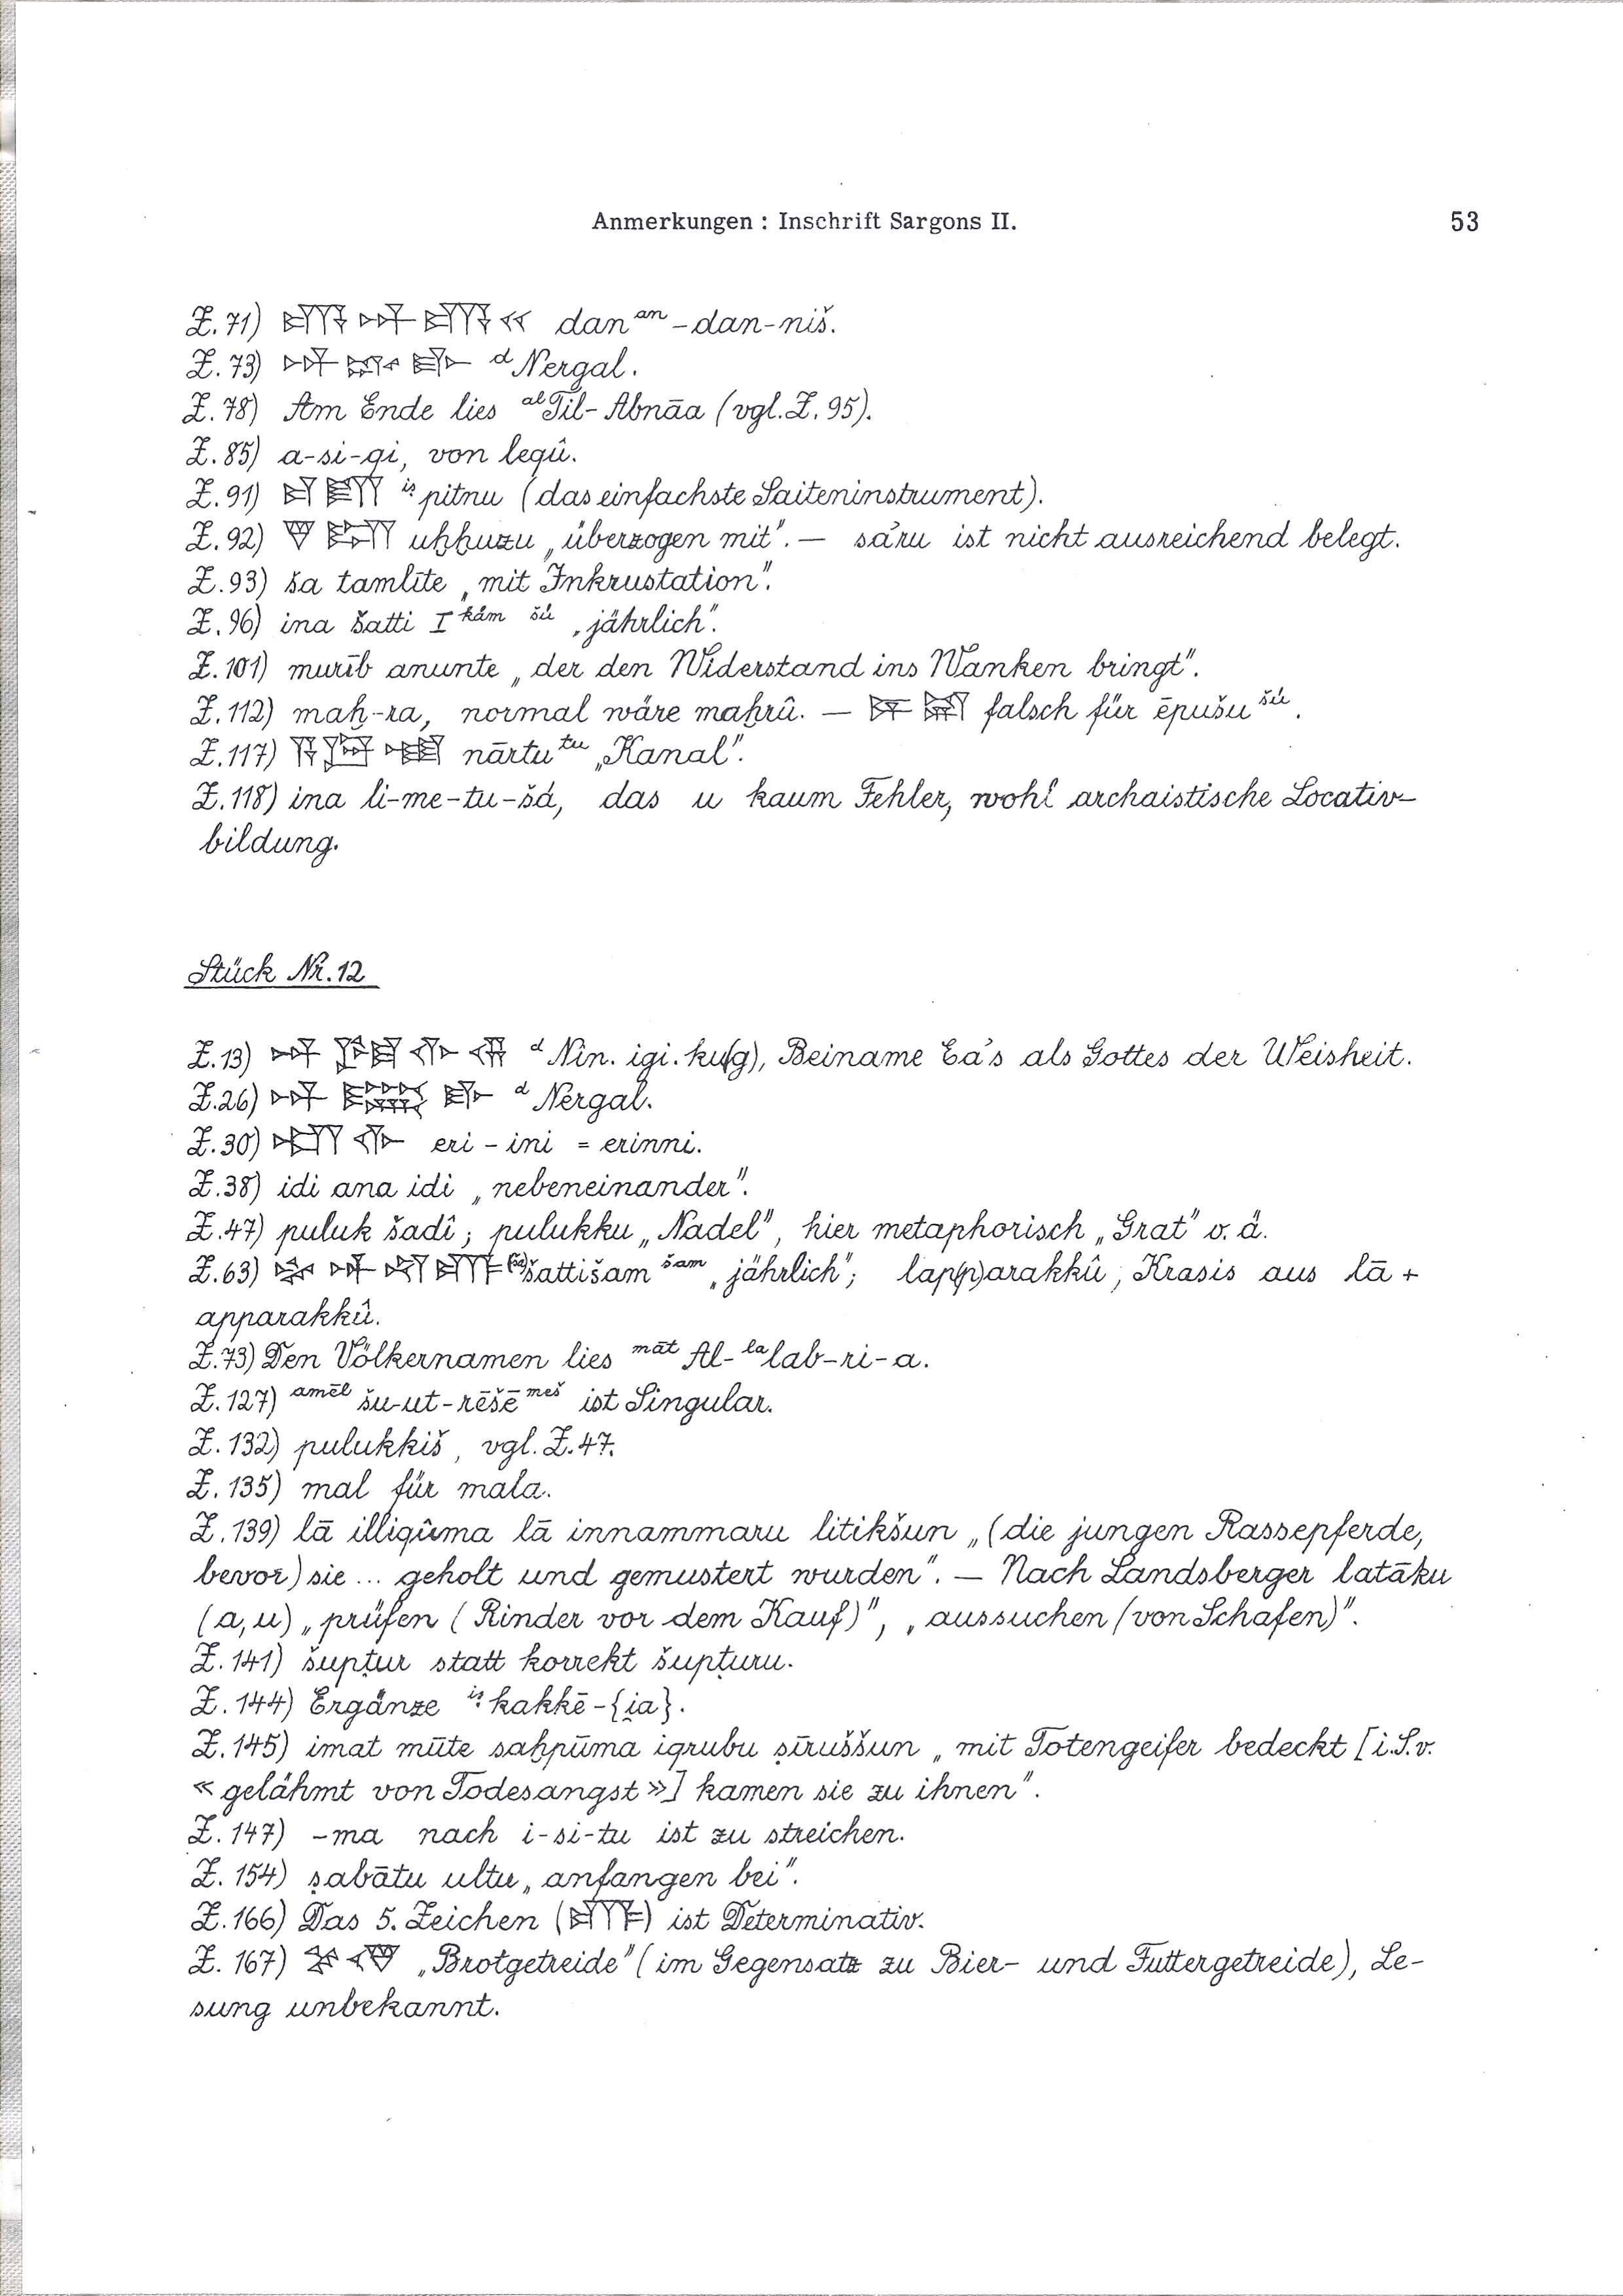 Anmerkungen : Inschrift Sargons II. 53
Z. 71) 𒆗 𒀭 𒆗 𒎙 danᵃⁿ-dan-niš.
Z. 73) 𒀭 ᵈNergal.
Z. 78) Am Ende lies ᵃˡTil-Abnāa (vgl. Z. 95).
Z. 85) a-si-qi, von leqû.
Z. 91) ⁱṣpitnu (das einfachste Saiteninstrument).
Z. 92) uḫḫuzu „überzogen mit". — sāru ist nicht ausreichend belegt.
Z. 93) ša tamlīte „mit Inkrustation".
Z. 96) ina šatti I ᵏáᵐ ˢ̌ⁱ́ „jährlich".
Z. 101) murīb anunte „der den Widerstand ins Wanken bringt".
Z. 112) maḫ-ra, normal wäre maḫrû. — falsch für ēpušu ˢ̌ᵘ́.
Z. 117) nārtuᵗᵘ „Kanal".
Z. 118) ina li-me-tu-šá, das u kaum Fehler, wohl archaistische Locativ-
bildung.
Stück Nr. 12
Z. 13) 𒀭 ᵈNin. igi. ku(g), Beiname Ea's als Gottes der Weisheit.
Z. 26) 𒀭 ᵈNergal.
Z. 30) eri-ini = erinni.
Z. 38) idi ana idi „nebeneinander".
Z. 47) puluk šadî; pulukku „Nadel", hier metaphorisch „Grat" o. ä.
Z. 63) šattišam ˢ̌ᵃᵐ „jährlich"; lap(p)arakkû, Krasis aus lā +
apparakkû.
Z. 73) Den Völkernamen lies ᵐāᵗ Al-ˡᵃlab-ri-a.
Z. 127) ᵃᵐēˡ šu-ut-rēšē ᵐᵉˢ̌ ist Singular.
Z. 132) pulukkiš, vgl. Z. 47.
Z. 135) mal für mala.
Z. 139) lā illiqûma lā innammaru litikšun „(die jungen Rassepferde,
bevor) sie ... geholt und gemustert wurden". — Nach Landsberger latāku
(a, u) „prüfen (Rinder vor dem Kauf)", „aussuchen (von Schafen)".
Z. 141) šupṭur statt korrekt šupṭuru.
Z. 144) Ergänze ⁱṣkakkē-{i̯a}.
Z. 145) imat mūte saḫpūma iqrubu ṣīruššun „mit Totengeifer bedeckt [i. S. v.
« gelähmt von Todesangst »] kamen sie zu ihnen".
Z. 147) -ma nach i-si-tu ist zu streichen.
Z. 154) ṣabātu ultu „anfangen bei".
Z. 166) Das 5. Zeichen ( ) ist Determinativ.
Z. 167) „Brotgetreide" (im Gegensatz zu Bier- und Futtergetreide), Le-
sung unbekannt.